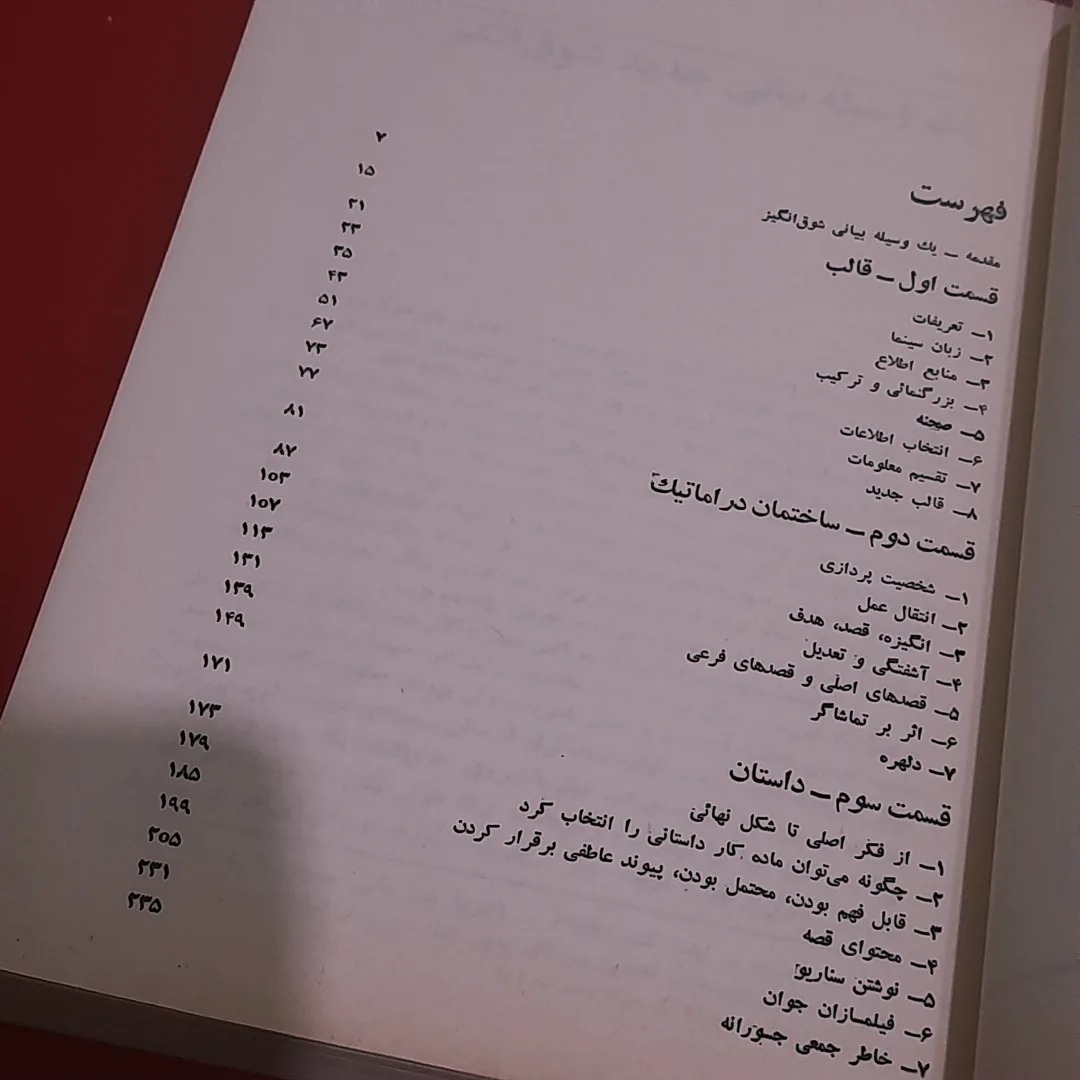 فهرست
مقدمه ــ یك وسیله بیانی شوق‌انگیز ۷
قسمت اول ــ قالب ۱۵
۱ــ تعریفات ۲۱
۲ــ زبان سینما ۲۳
۳ــ منابع اطلاع ۳۵
۴ــ بزرگنمائی و ترکیب ۴۳
۵ــ صحنه ۵۱
۶ــ انتخاب اطلاعات ۶۷
۷ــ تقسیم معلومات ۷۳
۸ــ قالب جدید ۷۷
قسمت دوم ــ ساختمان دراماتیك ۸۱
۱ــ شخصیت پردازی ۸۷
۲ــ انتقال عمل ۱۰۳
۳ــ انگیزه، قصد، هدف ۱۰۷
۴ــ آشفتگی و تعدیل ۱۱۳
۵ــ قصدهای اصلی و قصدهای فرعی ۱۳۱
۶ــ اثر بر تماشاگر ۱۳۹
۷ــ دلهره ۱۴۹
قسمت سوم ــ داستان ۱۷۱
۱ــ از فکر اصلی تا شکل نهائی ۱۷۳
۲ــ چگونه می‌توان ماده کار داستانی را انتخاب کرد ۱۷۹
۳ــ قابل فهم بودن، محتمل بودن، پیوند عاطفی برقرار کردن ۱۸۵
۴ــ محتوای قصه ۱۹۹
۵ــ نوشتن سناریو ۲۰۵
۶ــ فیلمسازان جوان ۲۳۱
۷ــ خاطر جمعی جسورانه ۲۳۵